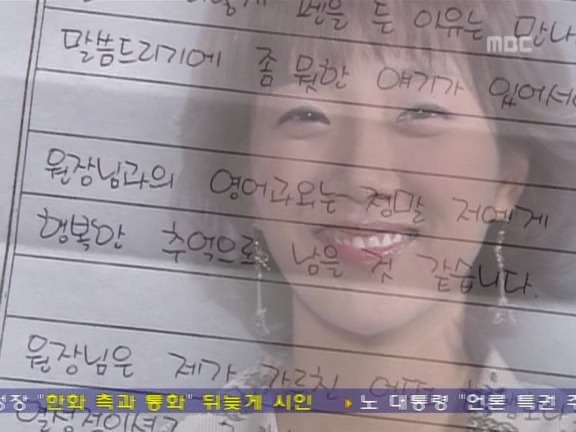 펜을 든 이유는 만나
MBC
말씀드리기에 좀 뭣한 얘기가 있어서
원장님과의 영어과외는 정말 저에게
행복한 추억으로 남을 것 같습니다.
원장님은 제가 가르친
성장 "한화 측과 통화" 뒤늦게 시인 ▶노 대통령 "언론 특권 주